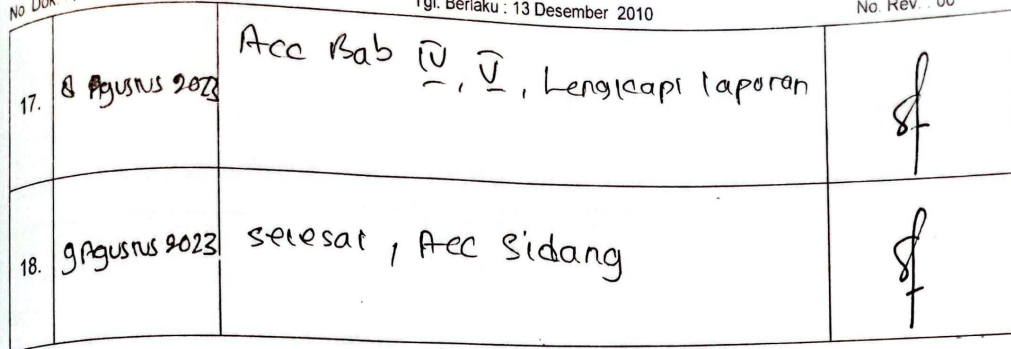 No Dok. Tgl. Berlaku : 13 Desember 2010 No. Rev. : 00
17. 8 Agustus 2023 Acc Bab IV, V, Lengkapi laporan
18. 9 Agustus 2023 selesai, Acc Sidang